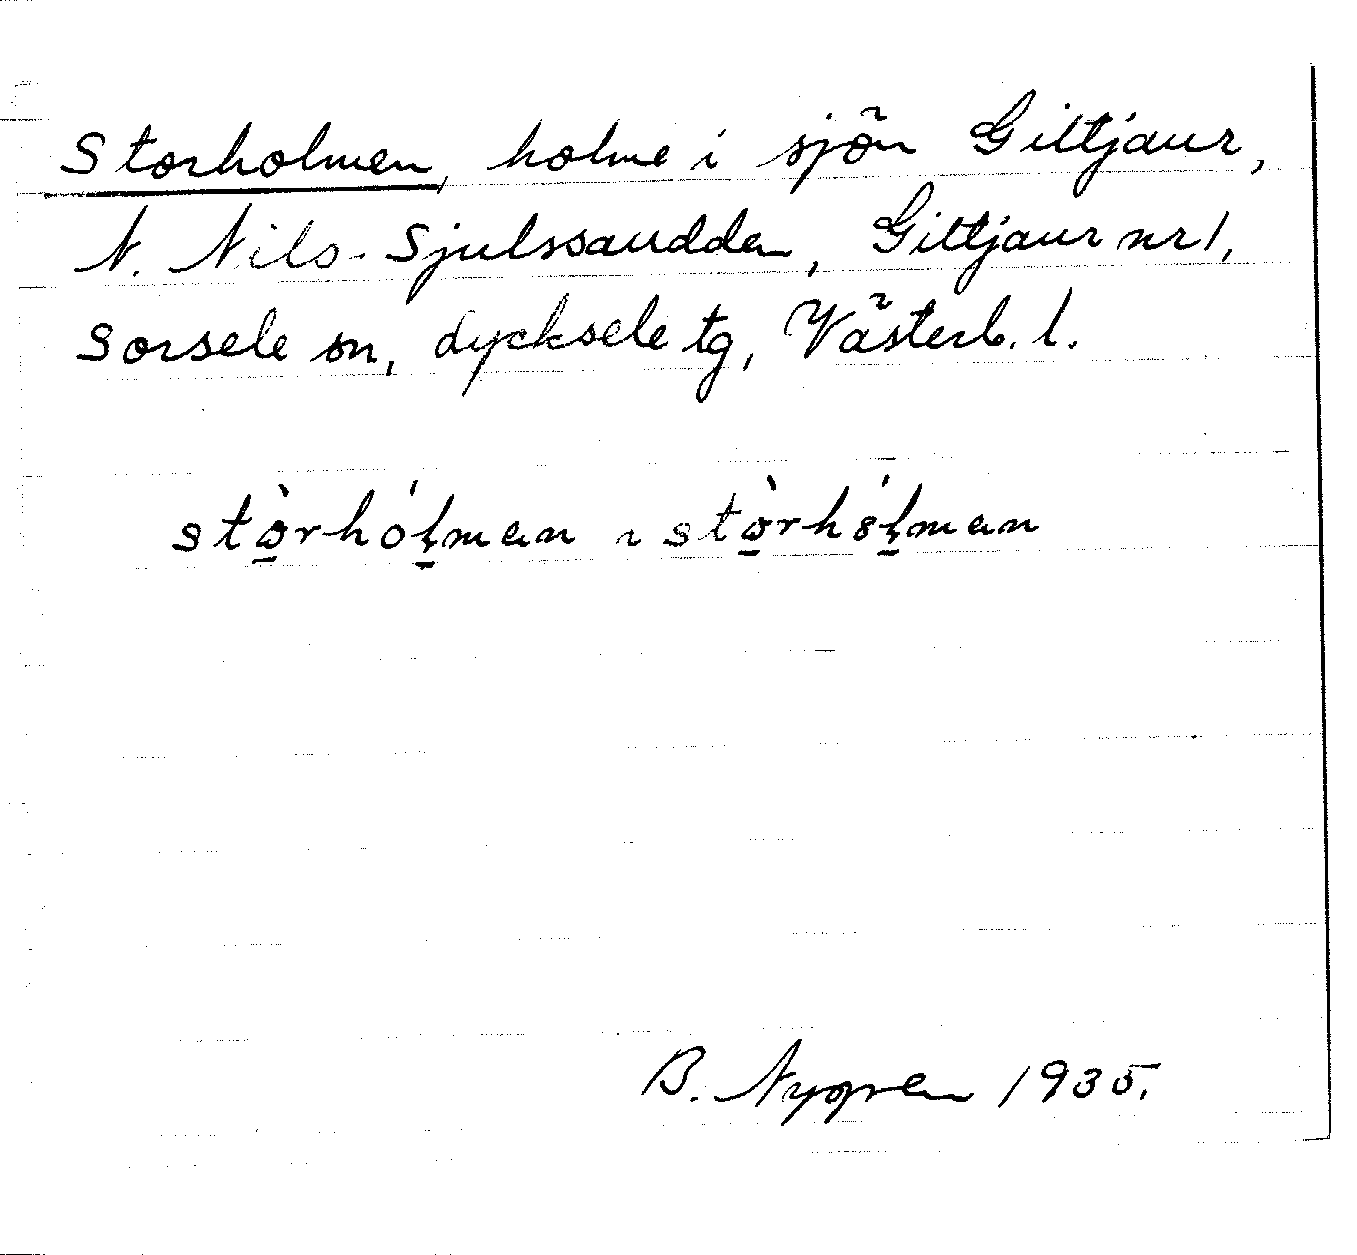 Storholmen, holme i sjön Gittjaur,
N. Nils-Sjulssaudden, Gittjaur nr 1,
Sorsele sn, Lycksele tg, Västerb. l.
stòrhólman ~ stòrhólman
B. Nygren 1935.